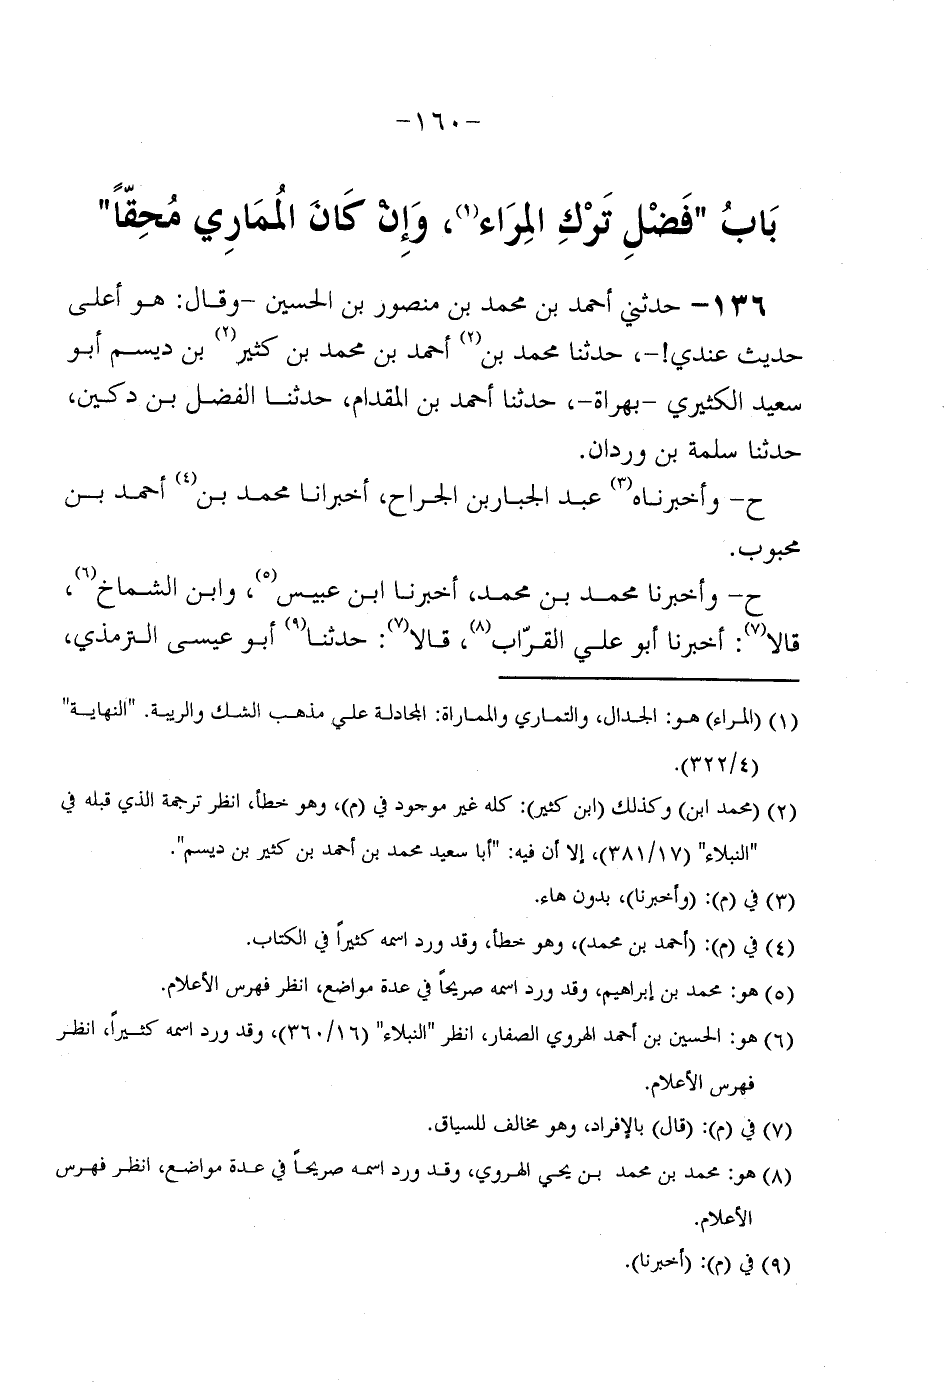 -١٦٠-
بَابُ "فَضْلِ تَرْكِ المِرَاء(١)، وَإِنْ كَانَ الُممَارِي مُحِقّاً"
١٣٦- حدثني أحمد بن محمد بن منصور بن الحسين -وقال: هو أعلى
حديث عندي!-، حدثنا محمد بن(٢) أحمد بن محمد بن كثير(٢) بن ديسم أبو
سعيد الكثيري -بهراة-، حدثنا أحمد بن المقدام، حدثنا الفضل بن دكين،
حدثنا سلمة بن وردان.
ح- وأخبرناه(٣) عبد الجبار بن الجراح، أخبرانا محمد بن(٤) أحمد بن
محبوب.
ح- وأخبرنا محمد بن محمد، أخبرنا ابن عبيس(٥)، وابن الشماخ(٦)،
قالا(٧): أخبرنا أبو علي القرّاب(٨)، قالا(٧): حدثنا(٩) أبو عيسى الترمذي،
(١) (المراء) هو: الجدال، والتماري والمماراة: المجادلة علي مذهب الشك والريبة. "النهاية"
(٣٢٢/٤).
(٢) (محمد ابن) وكذلك (ابن كثير): كله غير موجود في (م)، وهو خطأ، انظر ترجمة الذي قبله في
"النبلاء" (٣٨١/١٧)، إلا أن فيه: "أبا سعيد محمد بن أحمد بن كثير بن ديسم".
(٣) في (م): (وأخبرنا)، بدون هاء.
(٤) في (م): (أحمد بن محمد)، وهو خطأ، وقد ورد اسمه كثيراً في الكتاب.
(٥) هو: محمد بن إبراهيم، وقد ورد اسمه صريحاً في عدة مواضع، انظر فهرس الأعلام.
(٦) هو: الحسين بن أحمد الهروي الصفار، انظر "النبلاء" (٣٦٠/١٦)، وقد ورد اسمه كثيراً، انظر
فهرس الأعلام.
(٧) في (م): (قال) بالإفراد، وهو مخالف للسياق.
(٨) هو: محمد بن محمد بن يحي الهروي، وقد ورد اسمه صريحاً في عدة مواضع، انظر فهرس
الأعلام.
(٩) في (م): (أخبرنا).